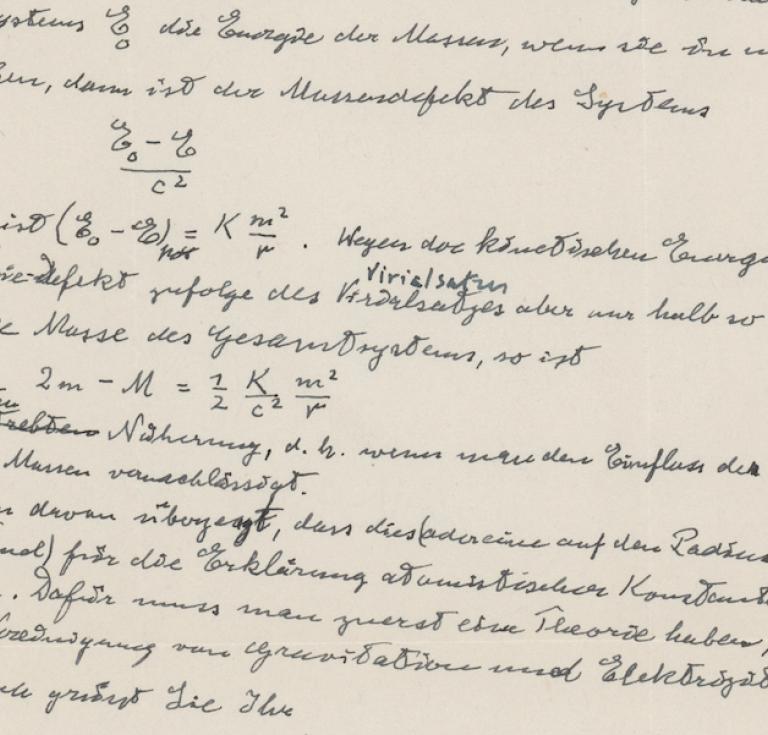 ystems ℰ₀ die Energie der Massen, wenn sie in u
hen, dann ist der Massendefekt des Systems
(ℰ₀ - ℰ) / c²
ist (ℰ₀ - ℰ)pot = K m²/r . Wegen der kinetischen Energ
ie-defekt zufolge des Virialsatzes aber nur halb so
Virialsatzes
e Masse des Gesamtsystems, so ist
2m - M = 1/2 K/c² m²/r
Näherung, d. h. wenn man den Einfluss der
Massen vernachlässigt.
n davon überzeugt, dass dies (oder eine auf den Radius
) für die Erklärung atomistischer Konstant
. Dafür muss man zuerst eine Theorie haben,
Vereinigung von Gravitation und Elektrizit
ch grüsst Sie Ihr